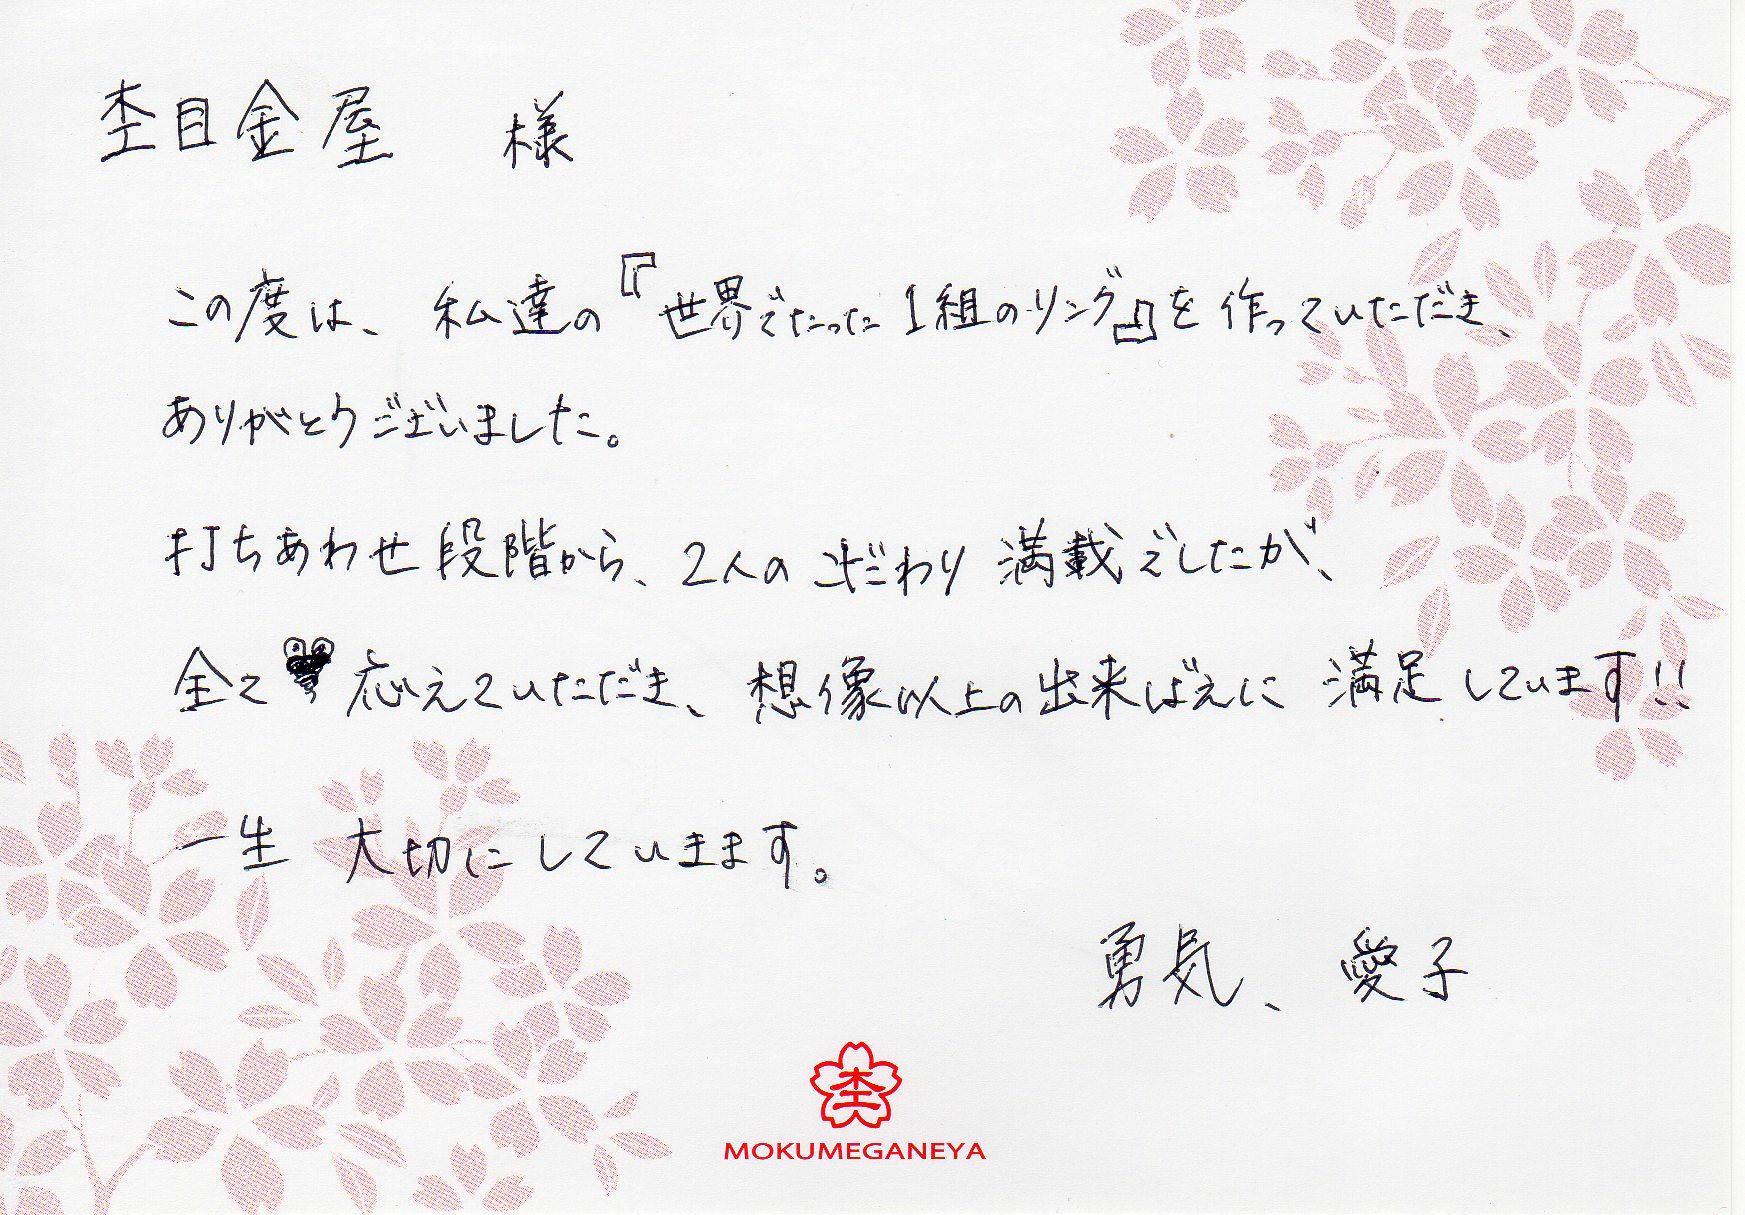 杢目金屋 様
この度は、私達の『世界でたった1組のリング』を作っていただき、
ありがとうございました。
打ちあわせ段階から、2人のこだわり満載でしたが、
全て応えていただき、想像以上の出来ばえに満足しています!!
一生大切にしていきます。
勇気、愛子
杢
MOKUMEGANEYA